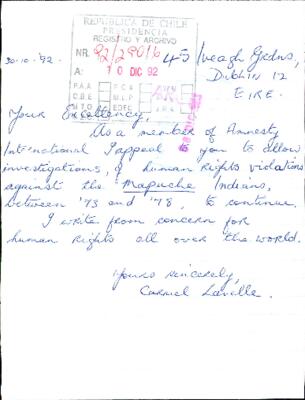 REPUBLICA DE CHILE
PRESIDENCIA
REGISTRO Y ARCHIVO
NR. 92/29016
A: 10 DIC 92
P.A.A. R.C.A.
C.B.E. M.L.P.
M.T.O. EDEC
30-10-'92.
45 Iveagh Grdns,
Dublin 12
EIRE.
Your Excellency,
As a member of Amnesty
International I appeal to you to allow
investigations, of human rights violations
against the Mapuche Indians,
between '73 and '78, to continue.
I write from concern for
human rights all over the world.
Yours sincerely,
Carmel Laville.